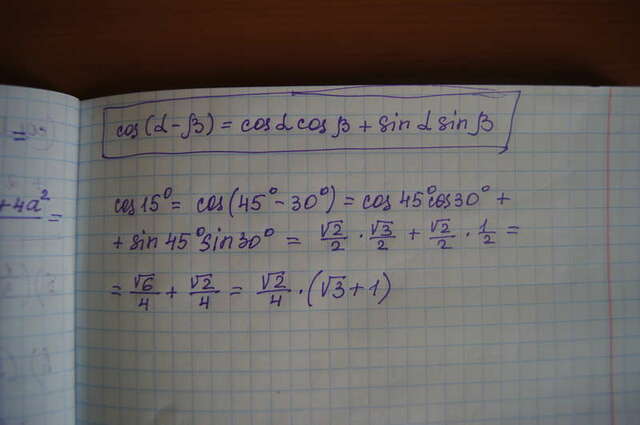 cos(α-β) = cosα cosβ + sinα sinβ
+4a² =
cos15° = cos(45°-30°) = cos45°cos30° +
+ sin45°sin30° = √2/2 · √3/2 + √2/2 · 1/2 =
= √6/4 + √2/4 = √2/4 · (√3+1)